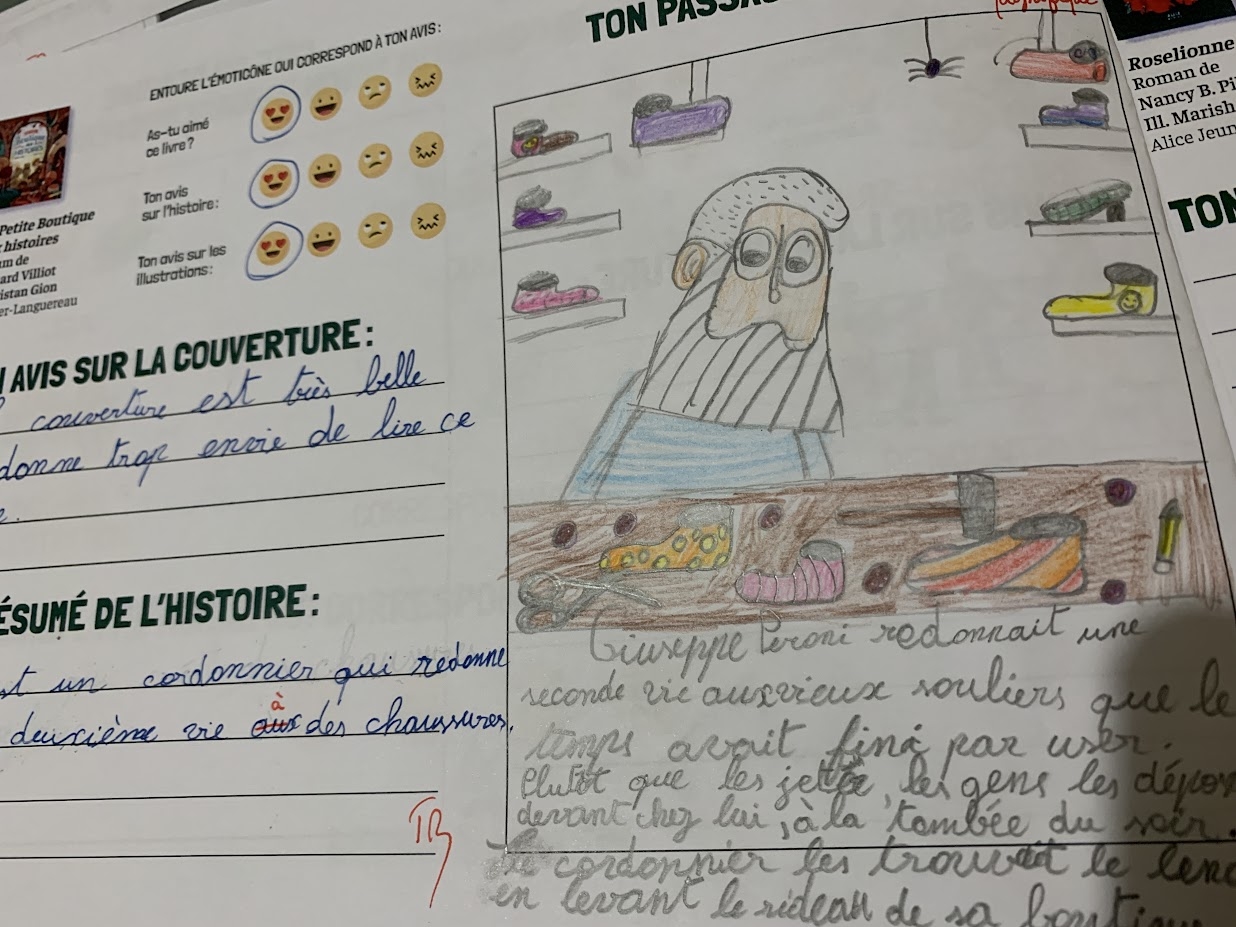 ENTOURE L'ÉMOTICÔNE QUI CORRESPOND À TON AVIS :
As-tu aimé
ce livre ?
Ton avis
sur l'histoire :
Ton avis sur les
illustrations :
Petite Boutique
histoires
de
ard Villiot
istan Gion
er-Languereau
AVIS SUR LA COUVERTURE :
couverture est très belle
donne trop envie de lire ce
ÉSUMÉ DE L'HISTOIRE :
st un cordonnier qui redonne
à
deuxième vie aux des chaussures.
TB
TON PASSA
Giuseppe Peroni redonnait une
seconde vie aux vieux souliers que le
temps avait fini par user.
Plutôt que les jetée, les gens les dépos
devant chez lui, à la tombée du soir.
Le cordonnier les trouvait le lend
en levant le rideau de sa boutique
Roselionne
Roman de
Nancy B. Pi
Ill. Marish
Alice Jeun
TON